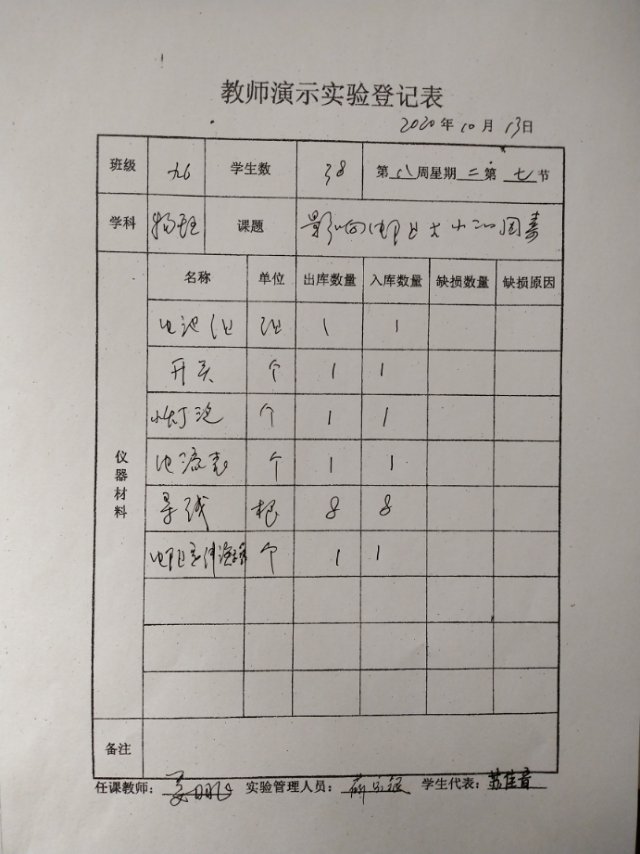 教师演示实验登记表
2020年10月13日
班级 九6 学生数 38 第八周星期二第七节
学科 物理 课题 影响电阻大小的因素
仪器材料
名称 单位 出库数量 入库数量 缺损数量 缺损原因
电池组 组 1 1
开关 个 1 1
小灯泡 个 1 1
电流表 个 1 1
导线 根 8 8
电阻定律演示器 个 1 1
备注
任课教师: 实验管理人员: 学生代表: 苏佳音